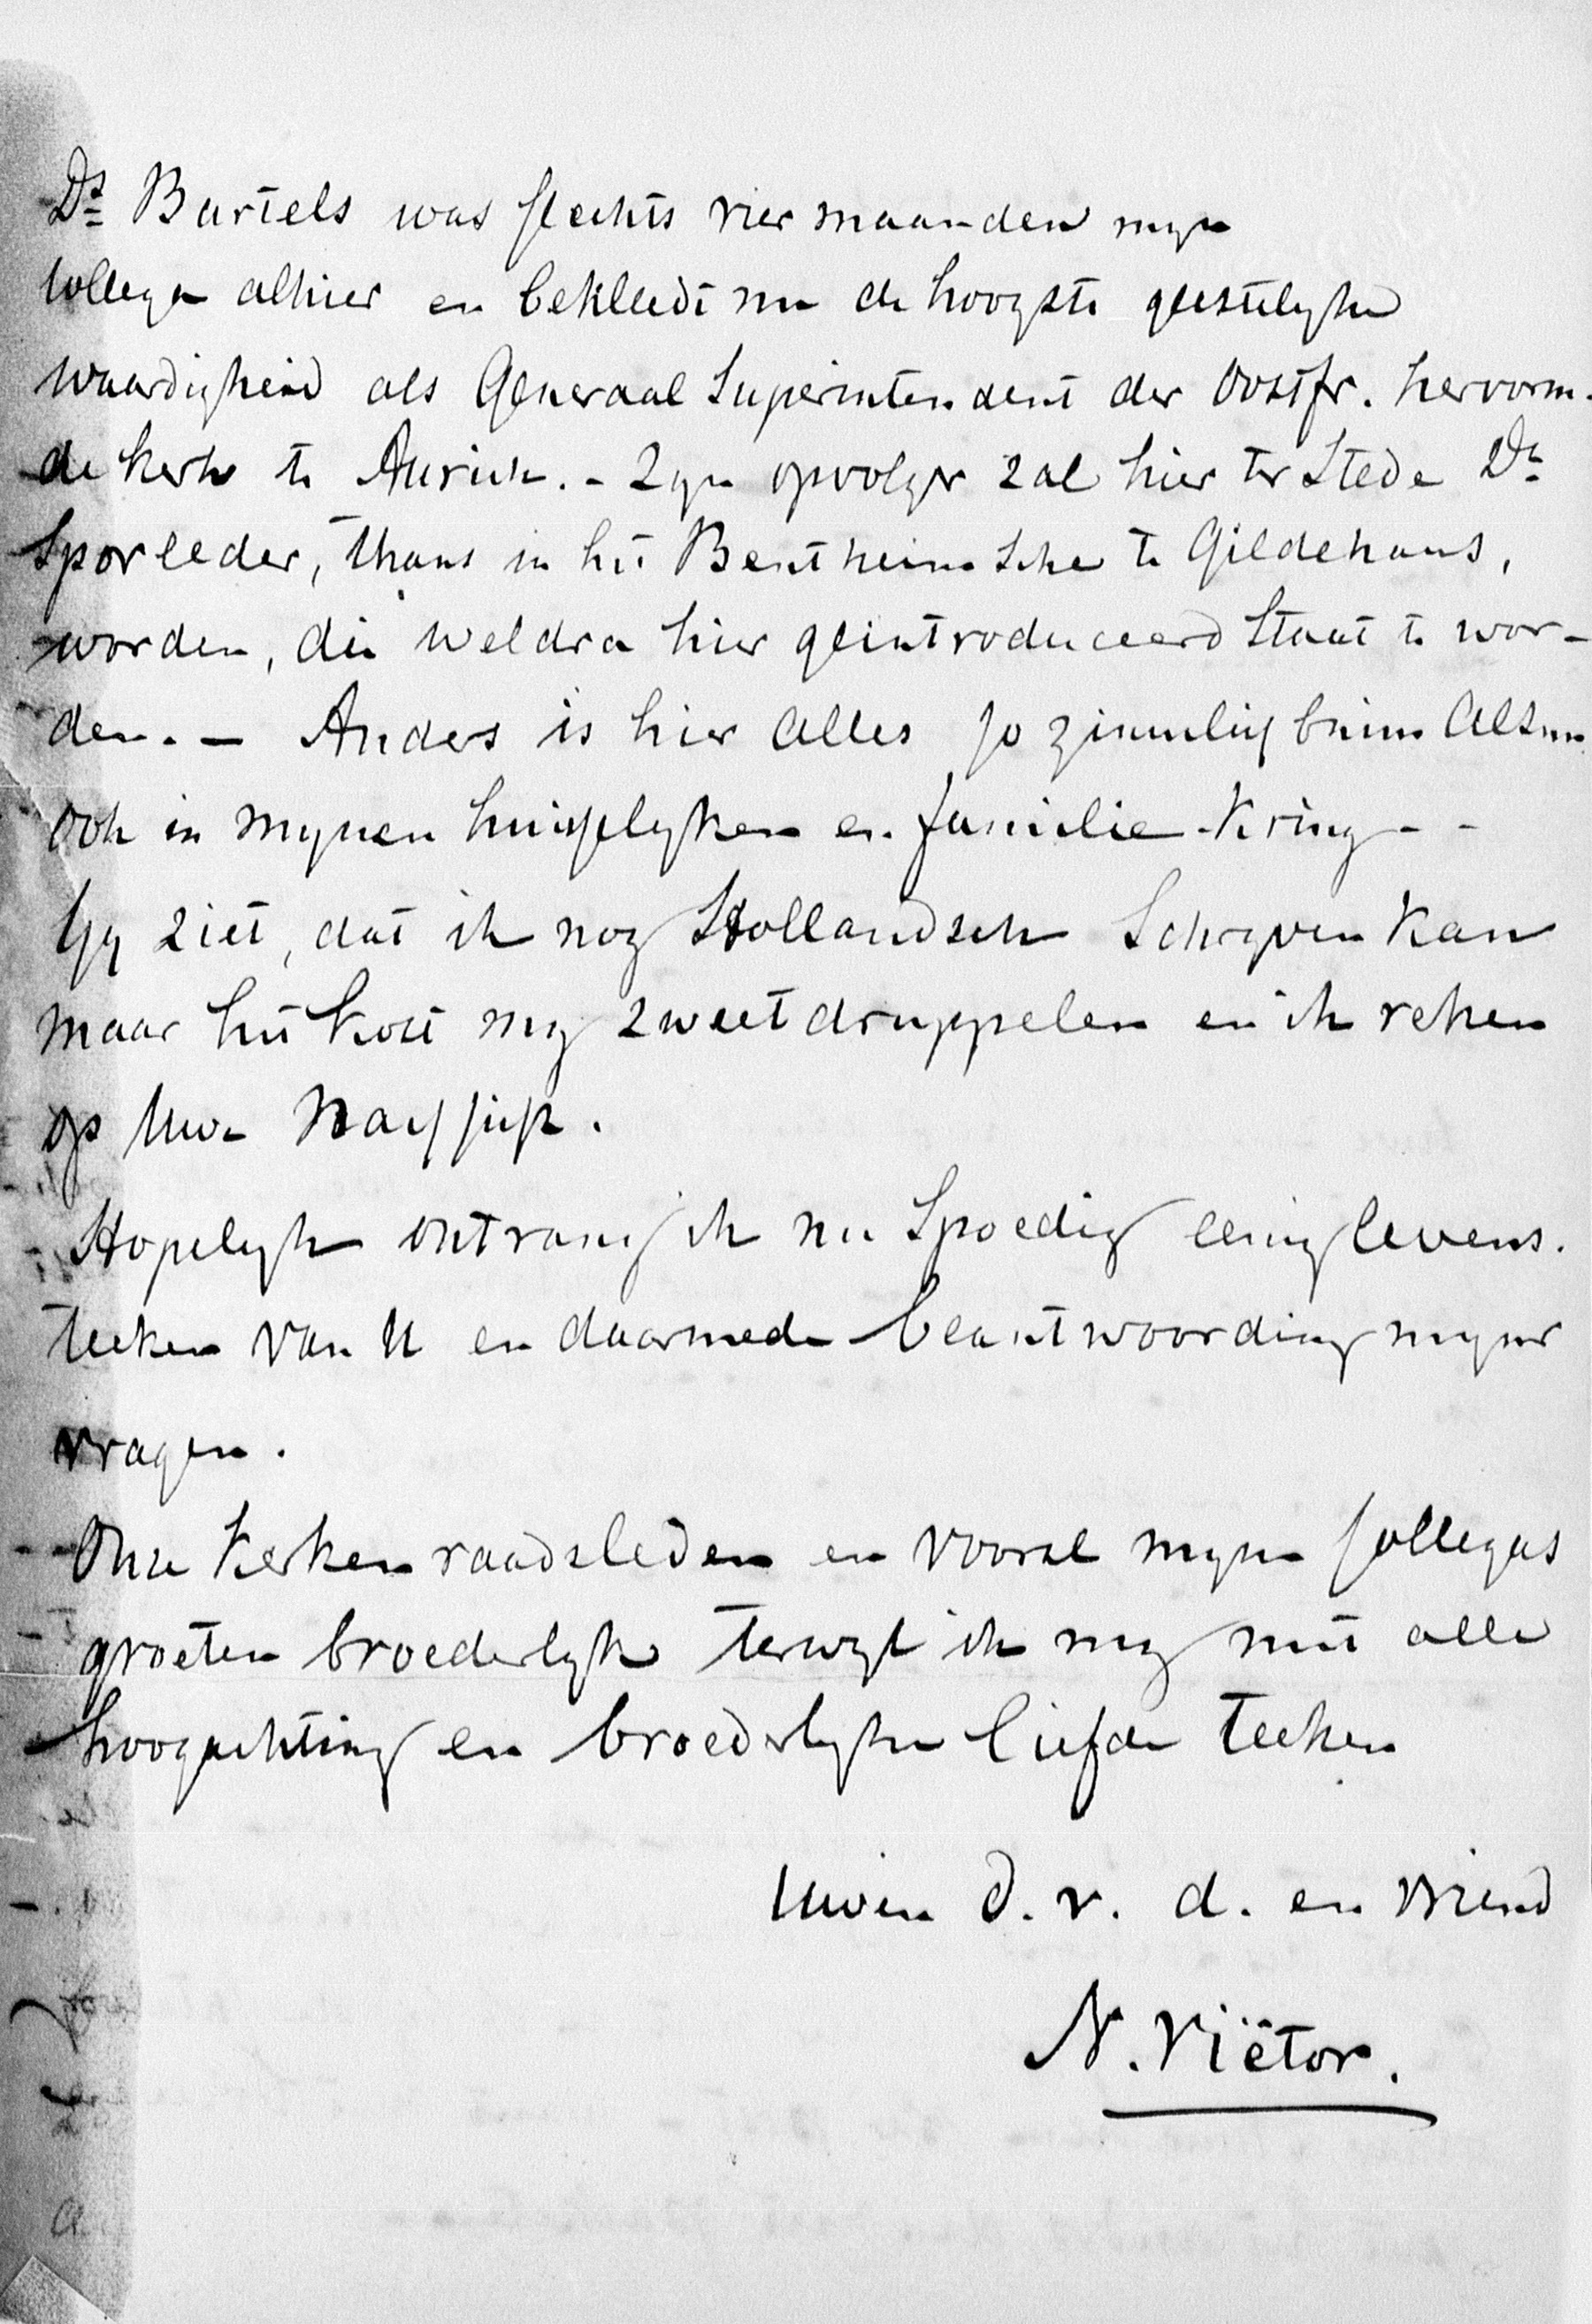 Ds Bartels was slechts vier maanden myn
Collega alhier en bekleedt nu de hoogste geestelyke
waardigheid als Generaal Superintendent der Oostfr. hervorm-
de kerk te Aurich. - Zyn opvolger zal hier ter Stede Ds
Sporleder, thans in het Bentheimsche te Gildehaus,
worden, die weldra hier geintroduceerd staat te wor-
den. - Anders is hier alles so ziemlich beim Alten
ook in mynen huisselyken en familie-Kring - -
Gy ziet, dat ik nog Hollandsch Schryven kan
maar het kost my zweetdruppelen en ik reken
op Uwe Nachsicht.
Hopelyk ontvang ik nu Spoedig eenig levens-
teeken van U en daarmede beantwoording myner
vragen.
Onze Kerkenraadsleden en vooral myne Collegas
groeten broederlyk terwyl ik my met alle
hoogachting en broederlyke liefde teeken
Uwen d. v. d. en Vriend
N. Viëtor.